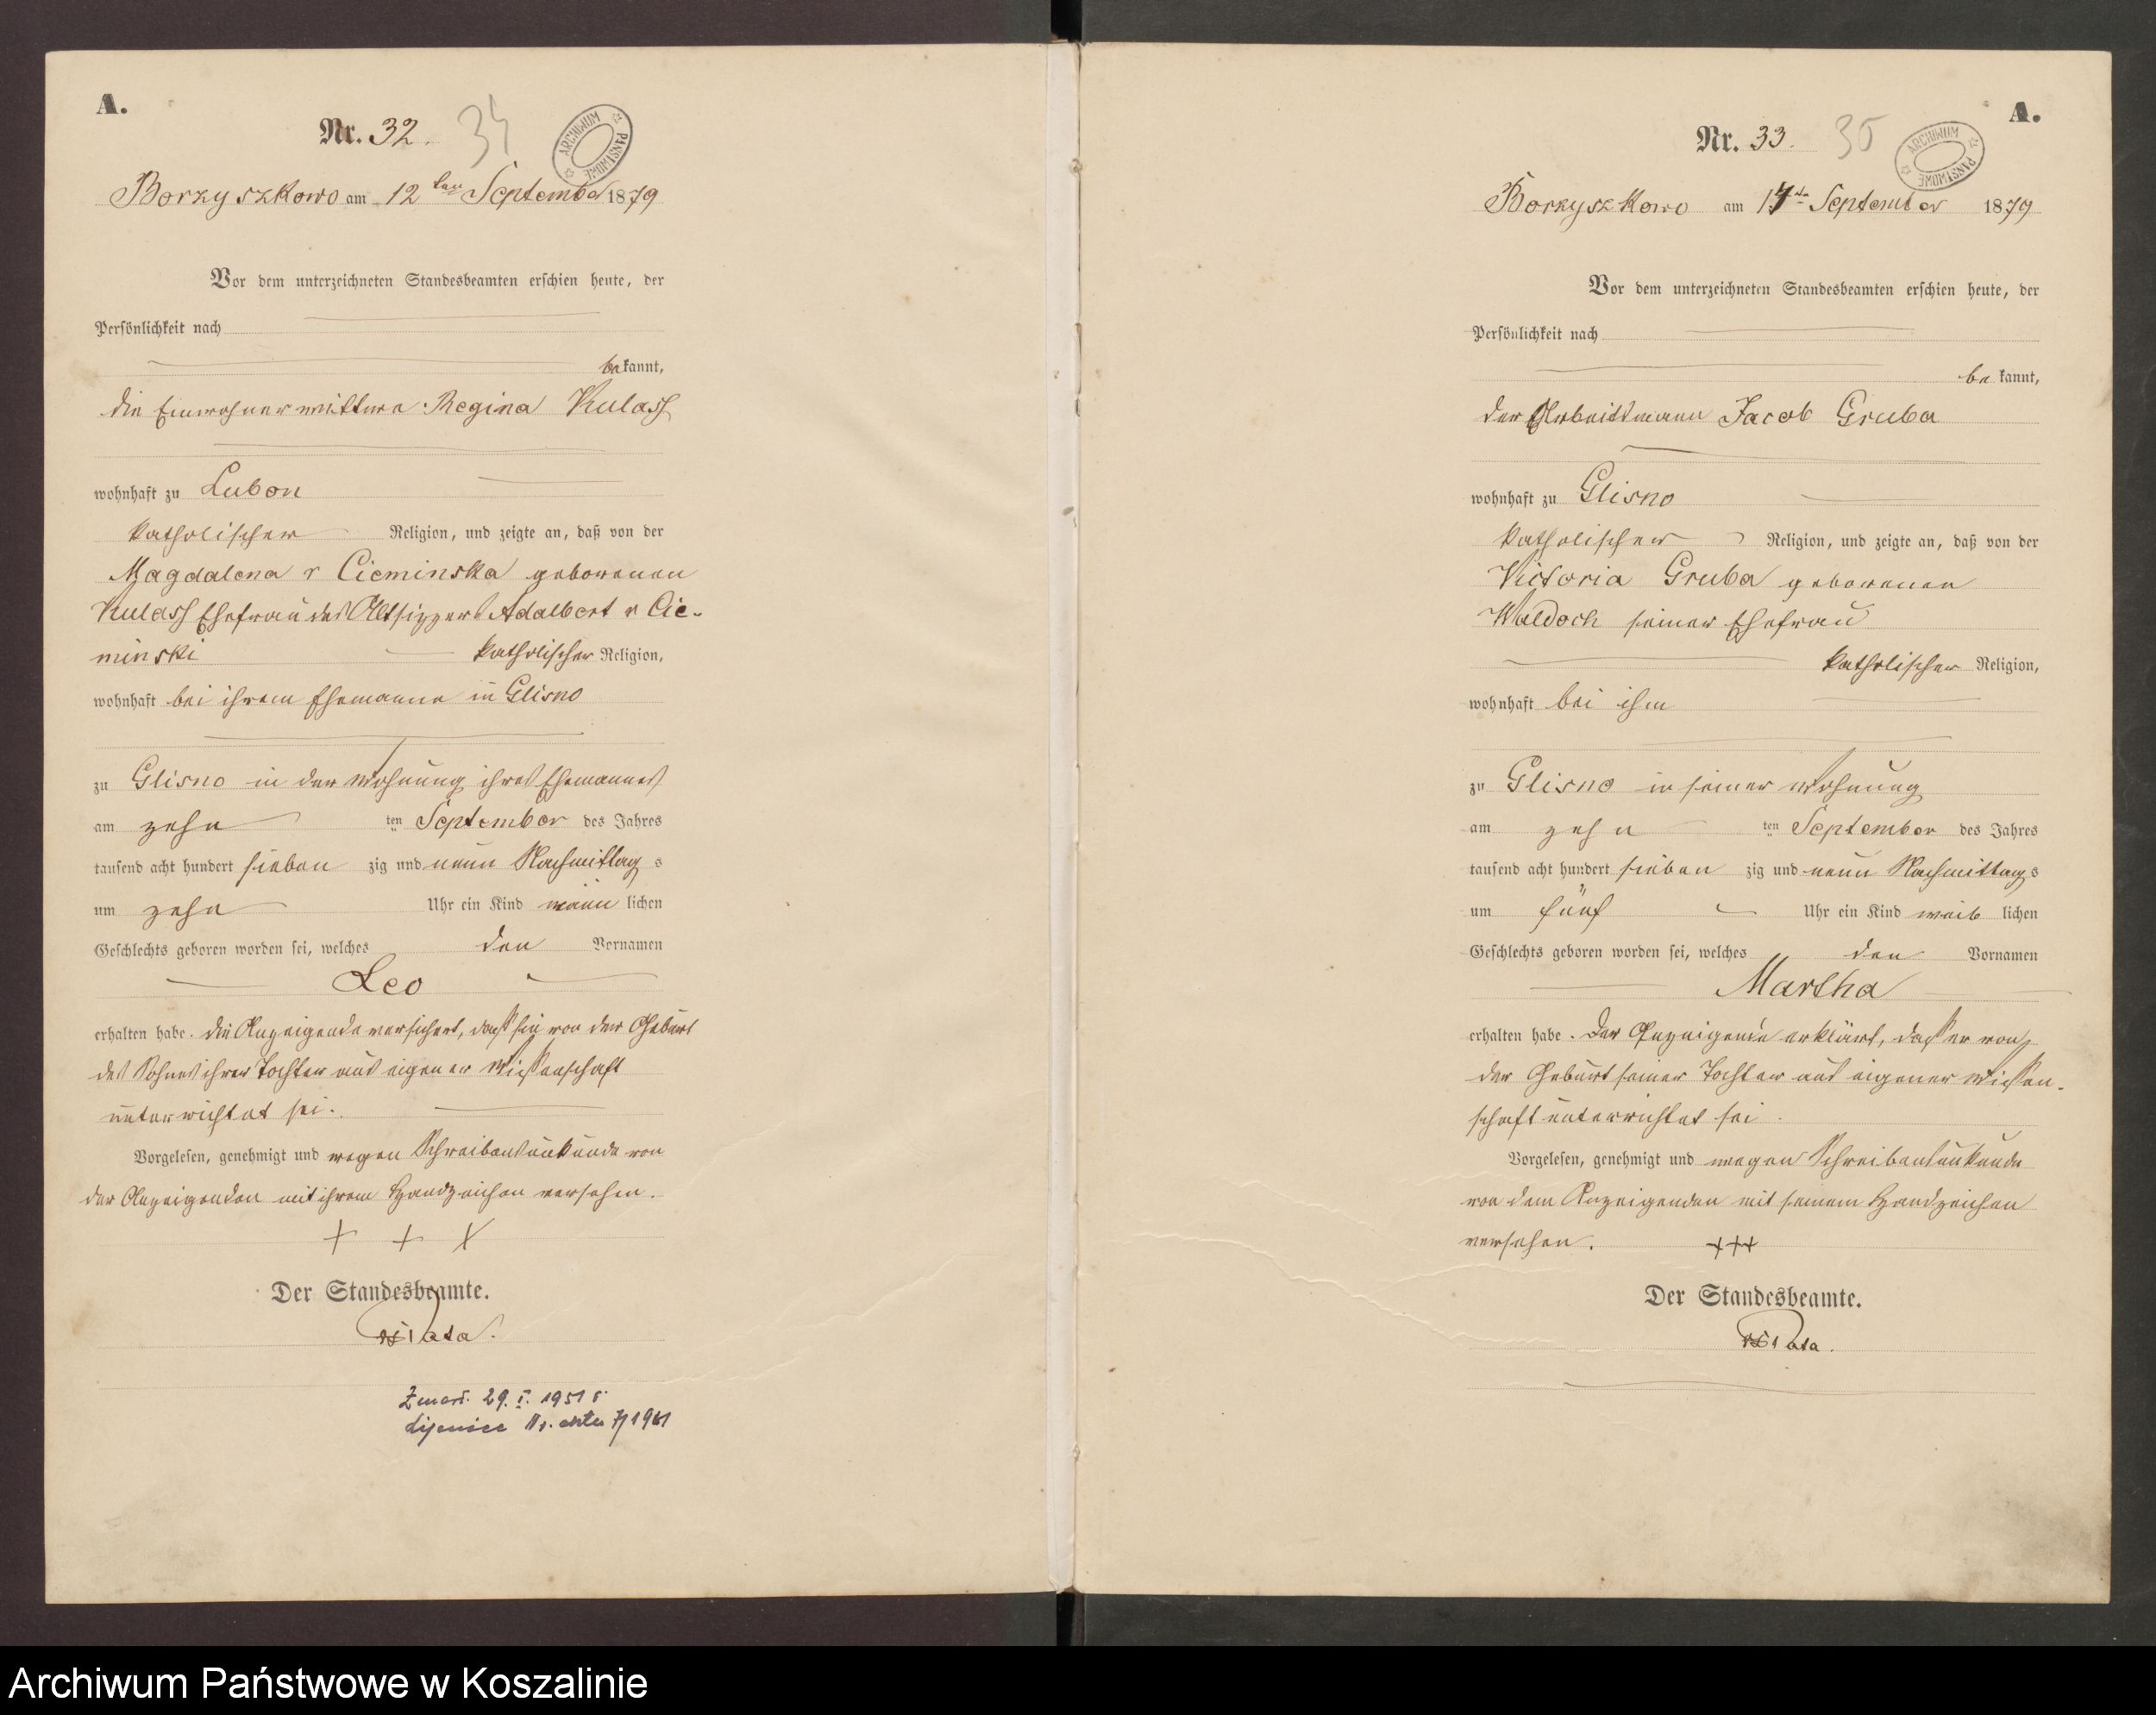 A.
Nr. 32.
34
ARCHIWUM PAŃSTWOWE
Borzyszkowo am 12ten September 1879
Vor dem unterzeichneten Standesbeamten erschien heute, der
Persönlichkeit nach
bekannt,
die Einwohnerwittwe Regina Kulass
wohnhaft zu Lubon
katholischer Religion, und zeigte an, daß von der
Magdalena v Cieminska geborenen
Kulass Ehefrau des Altsitzers Adalbert v Cie-
minski katholischer Religion,
wohnhaft bei ihrem Ehemanne in Glisno
zu Glisno in der Wohnung ihres Ehemannes
am zehn ten September des Jahres
tausend acht hundert sieben zig und neun Nachmittag s
um zehn Uhr ein Kind männ lichen
Geschlechts geboren worden sei, welches den Vornamen
Leo
erhalten habe. Die Anzeigende versichert, dass sie von der Geburt
des Sohnes ihrer Tochter aus eigener Wissenschaft
unterrichtet sei.
Vorgelesen, genehmigt und wegen Schreibensunkunde von
der Anzeigenden mit ihrem Handzeichen versehen.
+ + +
Der Standesbeamte.
Zmarł. 29. I. 1951 r.
Nr. aktu 7/1951
A.
Nr. 33.
35
ARCHIWUM PAŃSTWOWE
Borzyszkowo am September 1879
Vor dem unterzeichneten Standesbeamten erschien heute, der
Persönlichkeit nach
be kannt,
der Arbeitsmann Jacob Gruba
wohnhaft zu Glisno
katholischer Religion, und zeigte an, daß von der
Victoria Gruba geborenen
Waldoch seiner Ehefrau
katholischer Religion,
wohnhaft bei ihm
zu Glisno in seiner Wohnung
am zehn ten September des Jahres
tausend acht hundert sieben zig und neun Nachmittag s
um fünf Uhr ein Kind weib lichen
Geschlechts geboren worden sei, welches den Vornamen
Martha
erhalten habe. Der Anzeigende erklärt, dass er von
der Geburt seiner Tochter aus eigener Wissen-
schaft unterrichtet sei.
Vorgelesen, genehmigt und wegen Schreibensunkunde
von dem Anzeigenden mit seinem Handzeichen
versehen. +++
Der Standesbeamte.
Archiwum Państwowe w Koszalinie